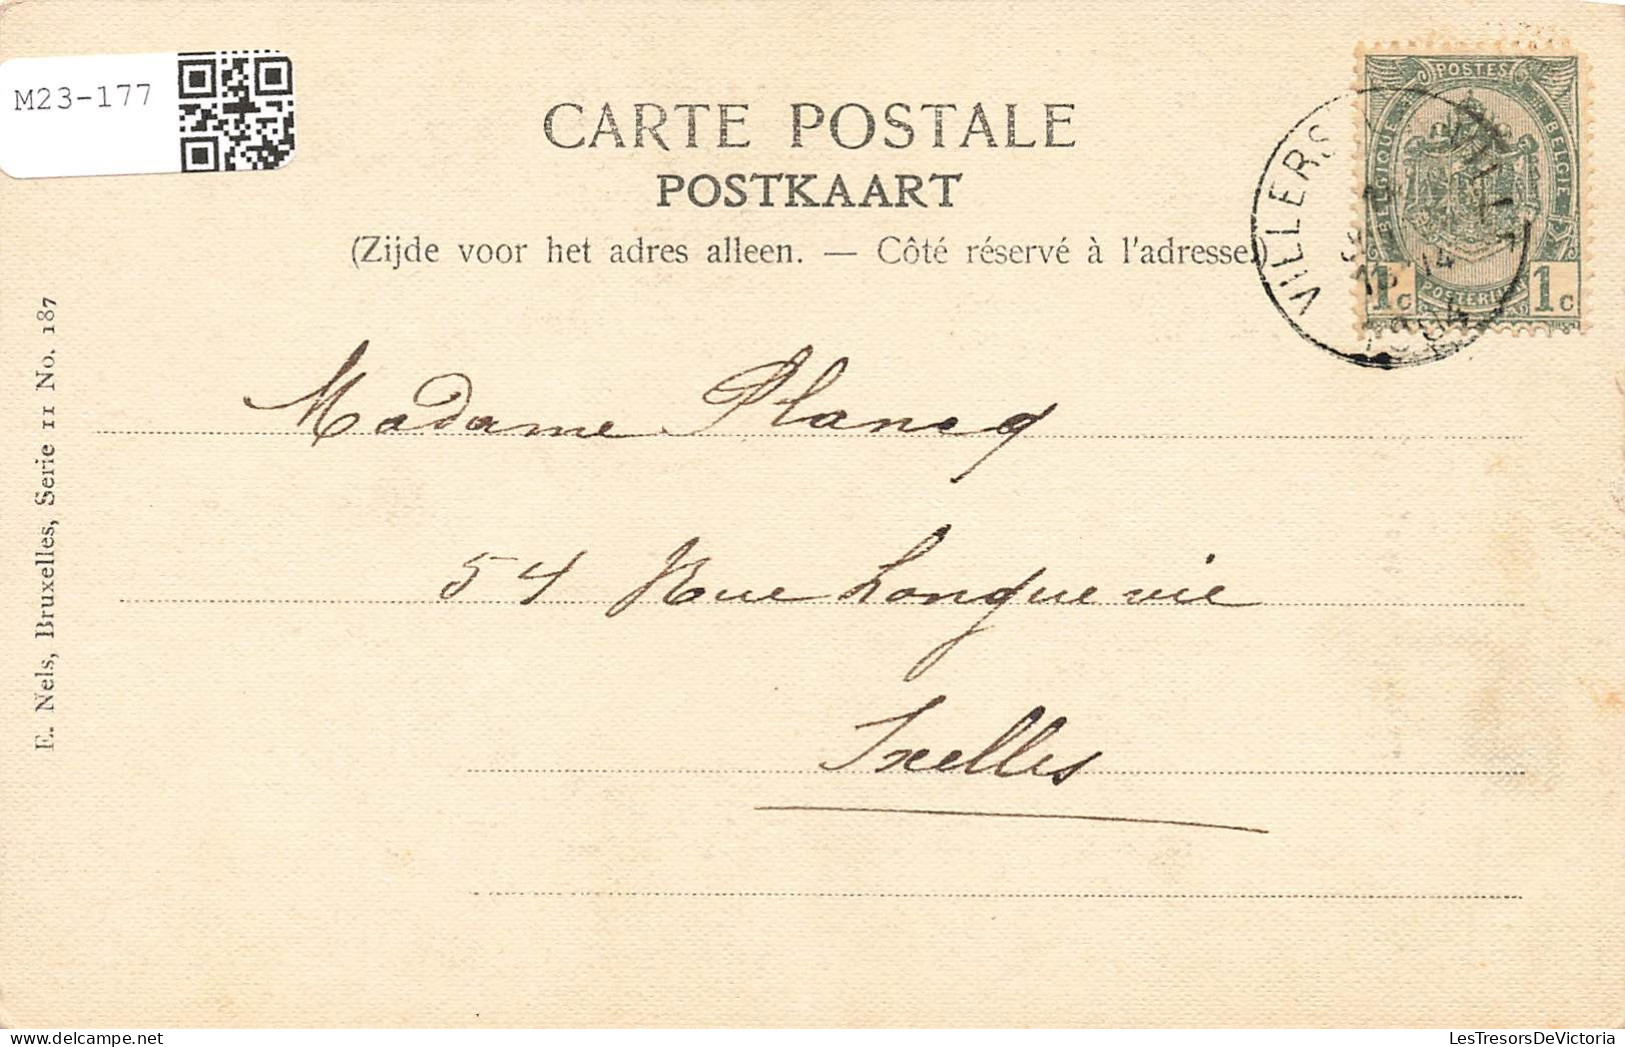 M23-177
CARTE POSTALE
POSTKAART
(Zijde voor het adres alleen. — Côté réservé à l'adresse.)
POSTES
BELGIQUE
BELGIE
POSTERIJEN
1c 1c
VILLERS VILLE
1904
Madame Plancq
54 Rue Longue vie
Ixelles
E. Nels, Bruxelles, Serie 11 No. 187
LesTresorsDeVictoria